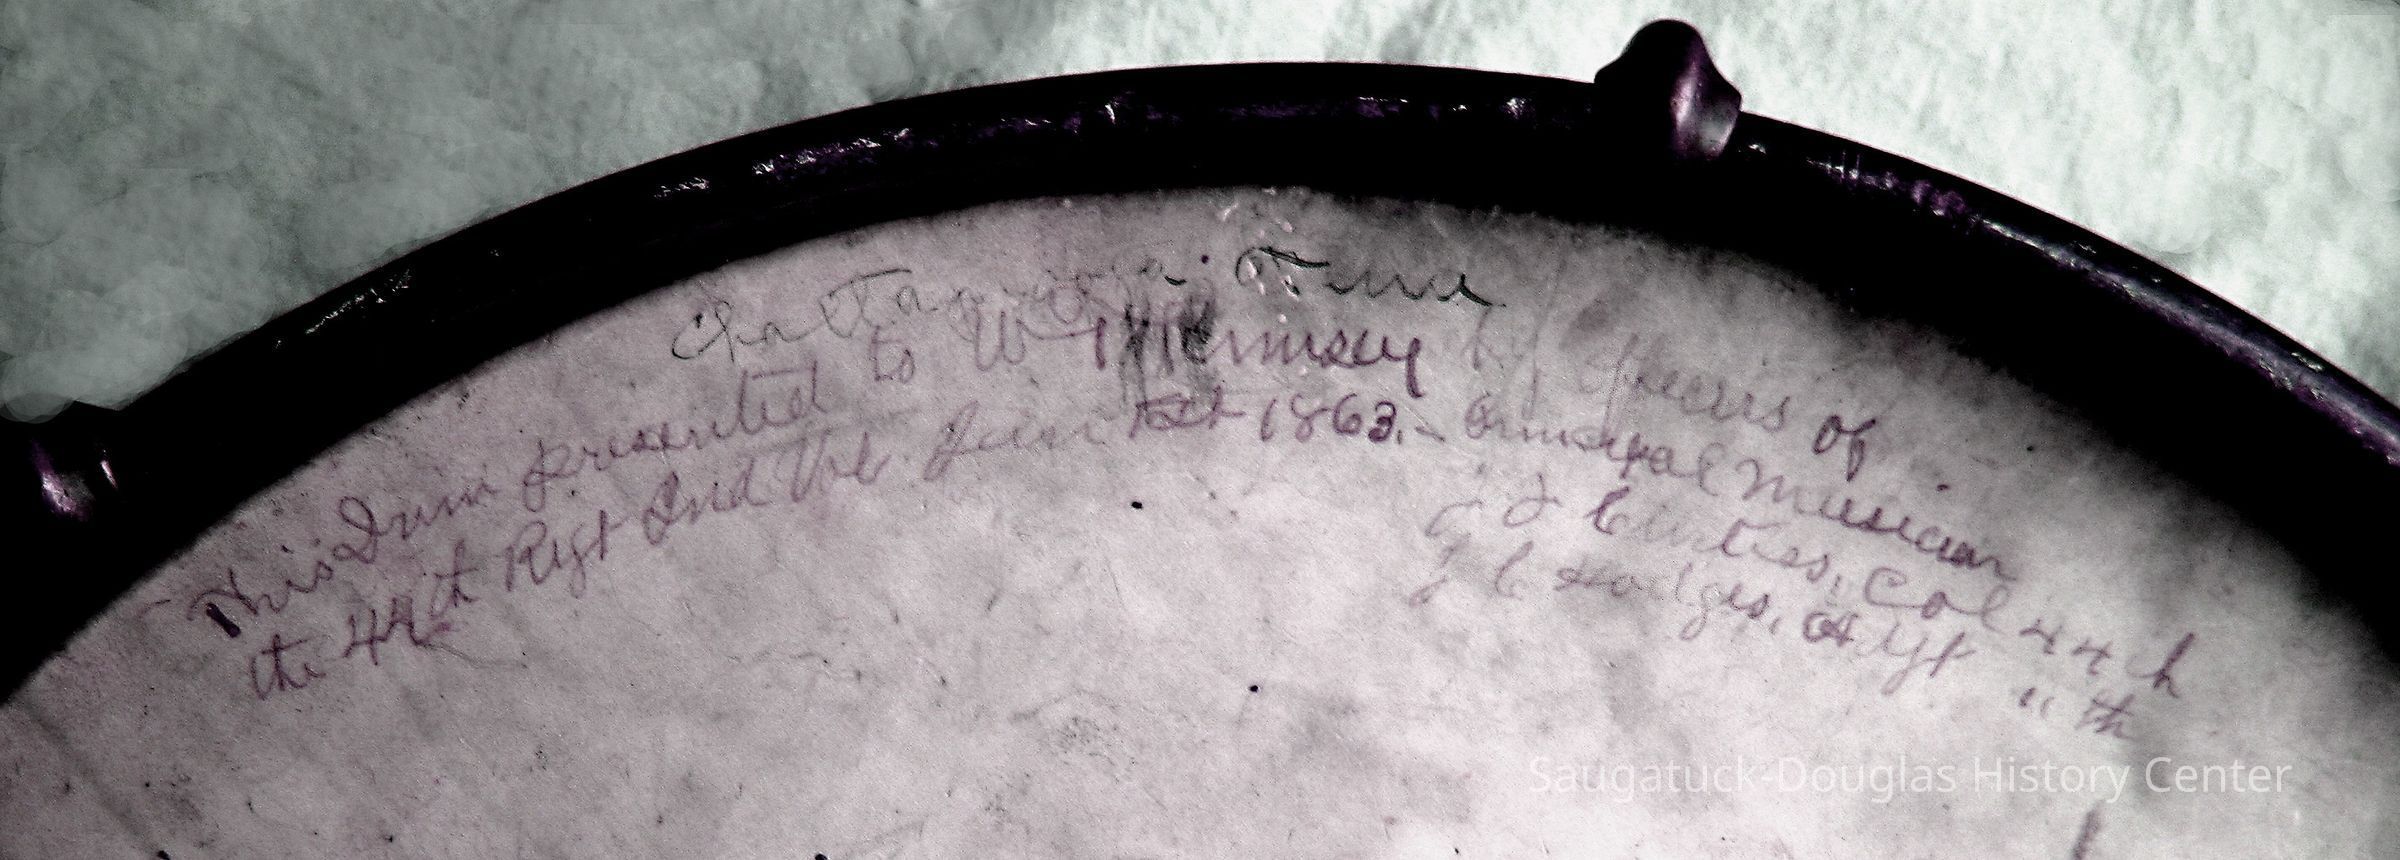 Chattanooga. Tenn
This Drum presented to W Rumsey by officers of
the 44th Regt Ind Vol. June 1st 1863. - Principal Musician
J Curtiss, Col 44th
J C Hodges, Adgt " th
Saugatuck-Douglas History Center